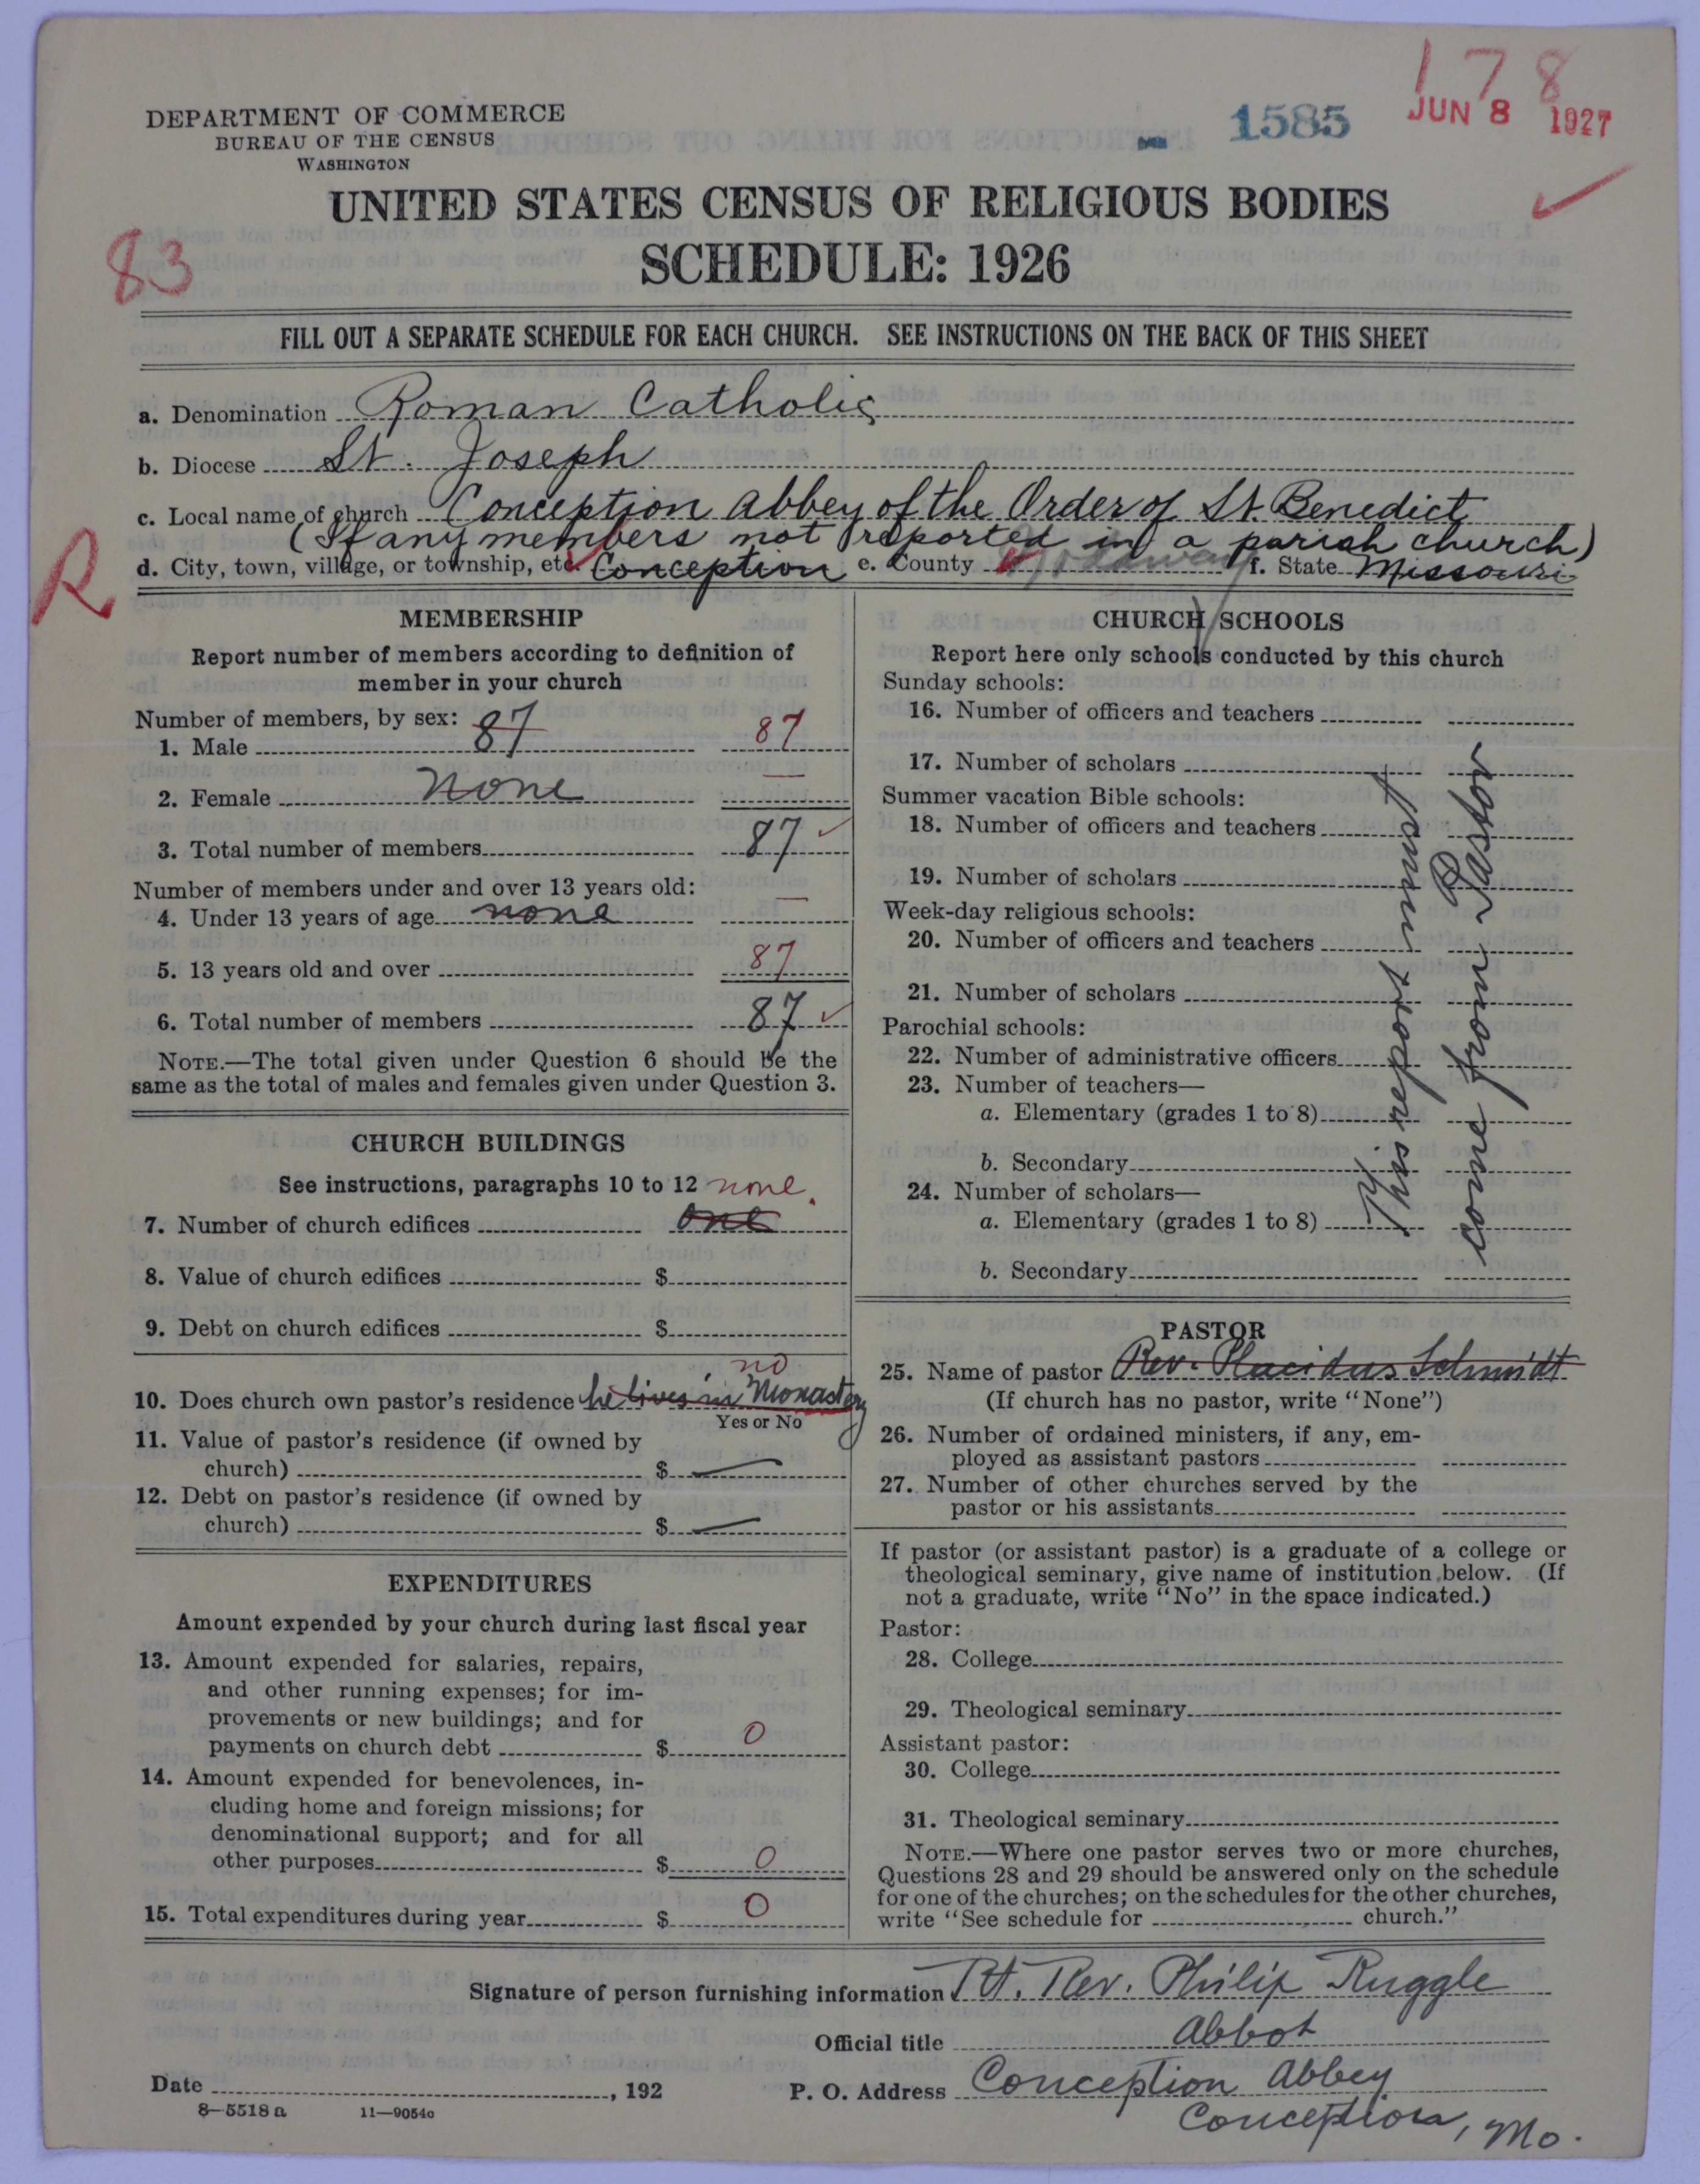 178
DEPARTMENT OF COMMERCE
BUREAU OF THE CENSUS
WASHINGTON
1585
JUN 8 1927
UNITED STATES CENSUS OF RELIGIOUS BODIES
83
SCHEDULE: 1926
FILL OUT A SEPARATE SCHEDULE FOR EACH CHURCH. SEE INSTRUCTIONS ON THE BACK OF THIS SHEET
a. Denomination Roman Catholic
b. Diocese St. Joseph
c. Local name of church Conception Abbey of the Order of St. Benedict
(If any members not reported in a parish church)
R
d. City, town, village, or township, etc. Conception e. County Nodaway f. State Missouri
MEMBERSHIP
Report number of members according to definition of
member in your church
Number of members, by sex:
1. Male 87 87
2. Female None —
3. Total number of members 87
Number of members under and over 13 years old:
4. Under 13 years of age none —
5. 13 years old and over 87
6. Total number of members 87
NOTE.—The total given under Question 6 should be the
same as the total of males and females given under Question 3.
CHURCH BUILDINGS
See instructions, paragraphs 10 to 12 none.
7. Number of church edifices one
8. Value of church edifices $
9. Debt on church edifices $
no
10. Does church own pastor's residence he lives in Monastery
Yes or No
11. Value of pastor's residence (if owned by
church) $ —
12. Debt on pastor's residence (if owned by
church) $ —
EXPENDITURES
Amount expended by your church during last fiscal year
13. Amount expended for salaries, repairs,
and other running expenses; for im-
provements or new buildings; and for
payments on church debt $ 0
14. Amount expended for benevolences, in-
cluding home and foreign missions; for
denominational support; and for all
other purposes $ 0
15. Total expenditures during year $ 0
CHURCH SCHOOLS
Report here only schools conducted by this church
Sunday schools:
16. Number of officers and teachers
17. Number of scholars
Summer vacation Bible schools:
18. Number of officers and teachers
19. Number of scholars
Week-day religious schools:
20. Number of officers and teachers
21. Number of scholars
Parochial schools:
22. Number of administrative officers
23. Number of teachers—
a. Elementary (grades 1 to 8)
b. Secondary
24. Number of scholars—
a. Elementary (grades 1 to 8)
b. Secondary
This report must
come from Pastor
PASTOR
25. Name of pastor Rev. Placidus Schmidt
(If church has no pastor, write "None")
26. Number of ordained ministers, if any, em-
ployed as assistant pastors
27. Number of other churches served by the
pastor or his assistants
If pastor (or assistant pastor) is a graduate of a college or
theological seminary, give name of institution below. (If
not a graduate, write "No" in the space indicated.)
Pastor:
28. College
29. Theological seminary
Assistant pastor:
30. College
31. Theological seminary
NOTE.—Where one pastor serves two or more churches,
Questions 28 and 29 should be answered only on the schedule
for one of the churches; on the schedules for the other churches,
write "See schedule for church."
Signature of person furnishing information Rt. Rev. Philip Ruggle
Official title Abbot
Date , 192
P. O. Address Conception Abbey
Conception, Mo.
8—5518a 11—9054c